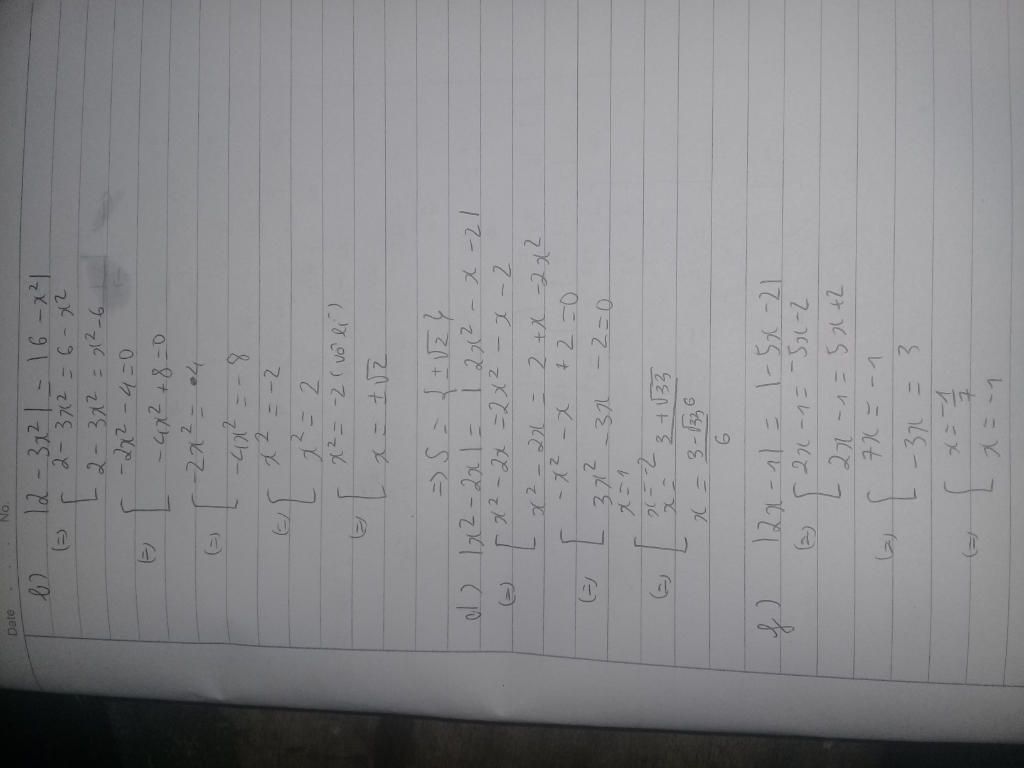 Date No.
b) |2 - 3x² | = |6 - x²|
(=) [ 2 - 3x² = 6 - x²
2 - 3x² = x² - 6
(=) [ -2x² - 4 = 0
-4x² + 8 = 0
(=) [ -2x² = 4
-4x² = -8
(=) [ x² = -2
x² = 2
(=) [ x² = -2 (vô lí)
x = ±√2
=> S = { ±√2 }
d) |x² - 2x| = | 2x² - x - 2|
(=) [ x² - 2x = 2x² - x - 2
x² - 2x = 2 + x - 2x²
(=) [ -x² - x + 2 = 0
3x² - 3x - 2 = 0
x = 1
x = -2
(=) [ x = 3 + √33 / 6
x = 3 - √33 / 6
f) |2x - 1| = |-5x - 2|
(=) [ 2x - 1 = -5x - 2
2x - 1 = 5x + 2
(=) [ 7x = -1
-3x = 3
(=) [ x = -1/7
x = -1